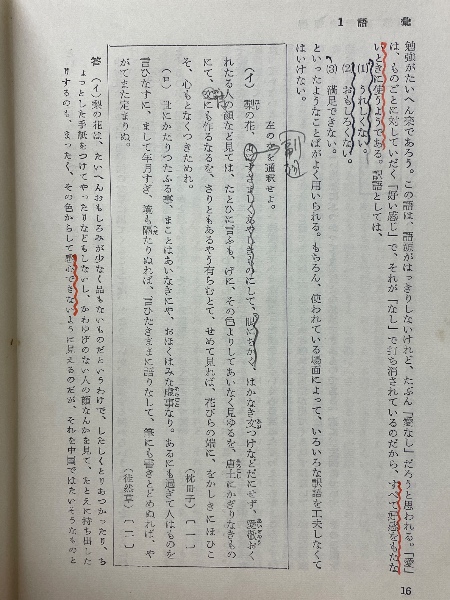 1 語彙
勉強がたいへん楽であろう。この語は、語源がはっきりしないけれど、たぶん「愛なし」だろうと思われる。「愛」
は、ものごとに対していだく「好い感じ」で、それが「なし」で打ち消されているのだから、すべて好感をもたな
いときに使うよである。訳語としては、
(1) うれしくない。
(2) おもしろくない。
(3) 満足できない。
といったようなことばがよく用いられる。もちろん、使われている場面によって、いろいろな訳語を工夫しなくて
はいけない。
副詞
左の文を通釈せよ。
(イ) 梨の花、よにすさまじくあやしきものにして、目にちかく、はかなき文つけなどだにせず、愛敬おく
れたる人の顔など見ては、たとひに言ふも、げに、その色よりしてあいなく見ゆるを、唐土にかぎりなきもの
にて、文にも作るなるを、さりともあるやう有らむとて、せめて見れば、花びらの端に、をかしきにほひこ
そ、心もとなくつきためれ。
(枕冊子)〔一〕
(ロ) 世にかたりつたふる事、まことはあいなきにや、おほくはみな虚事なり。あるにも過ぎて人はものを
言ひなすに、まして年月すぎ、境も隔たりぬれば、言ひたきままに語りなして、筆にも書きとどめぬれば、や
がてまた定まりぬ。
(徒然草)〔二〕
答 (イ) 梨の花は、たいへんおもしろみが少なく品もないものだというわけで、したしくとりあつかったり、ち
ょっとした手紙をつけてやったりなどもしないし、かわいげのない人の顔なんかを見て、たとえに持ち出した
りするのも、まったく、その色からして感心できないように見えるのだが、それを中国ではたいそうなものと
16